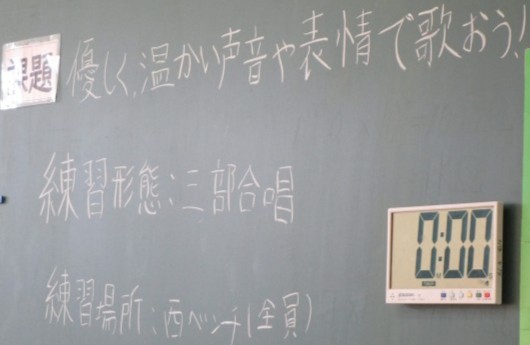 課題 優しく、温かい声音や表情で歌おう!
練習形態:三部合唱
練習場所:西ベンチ(全員)
0:00